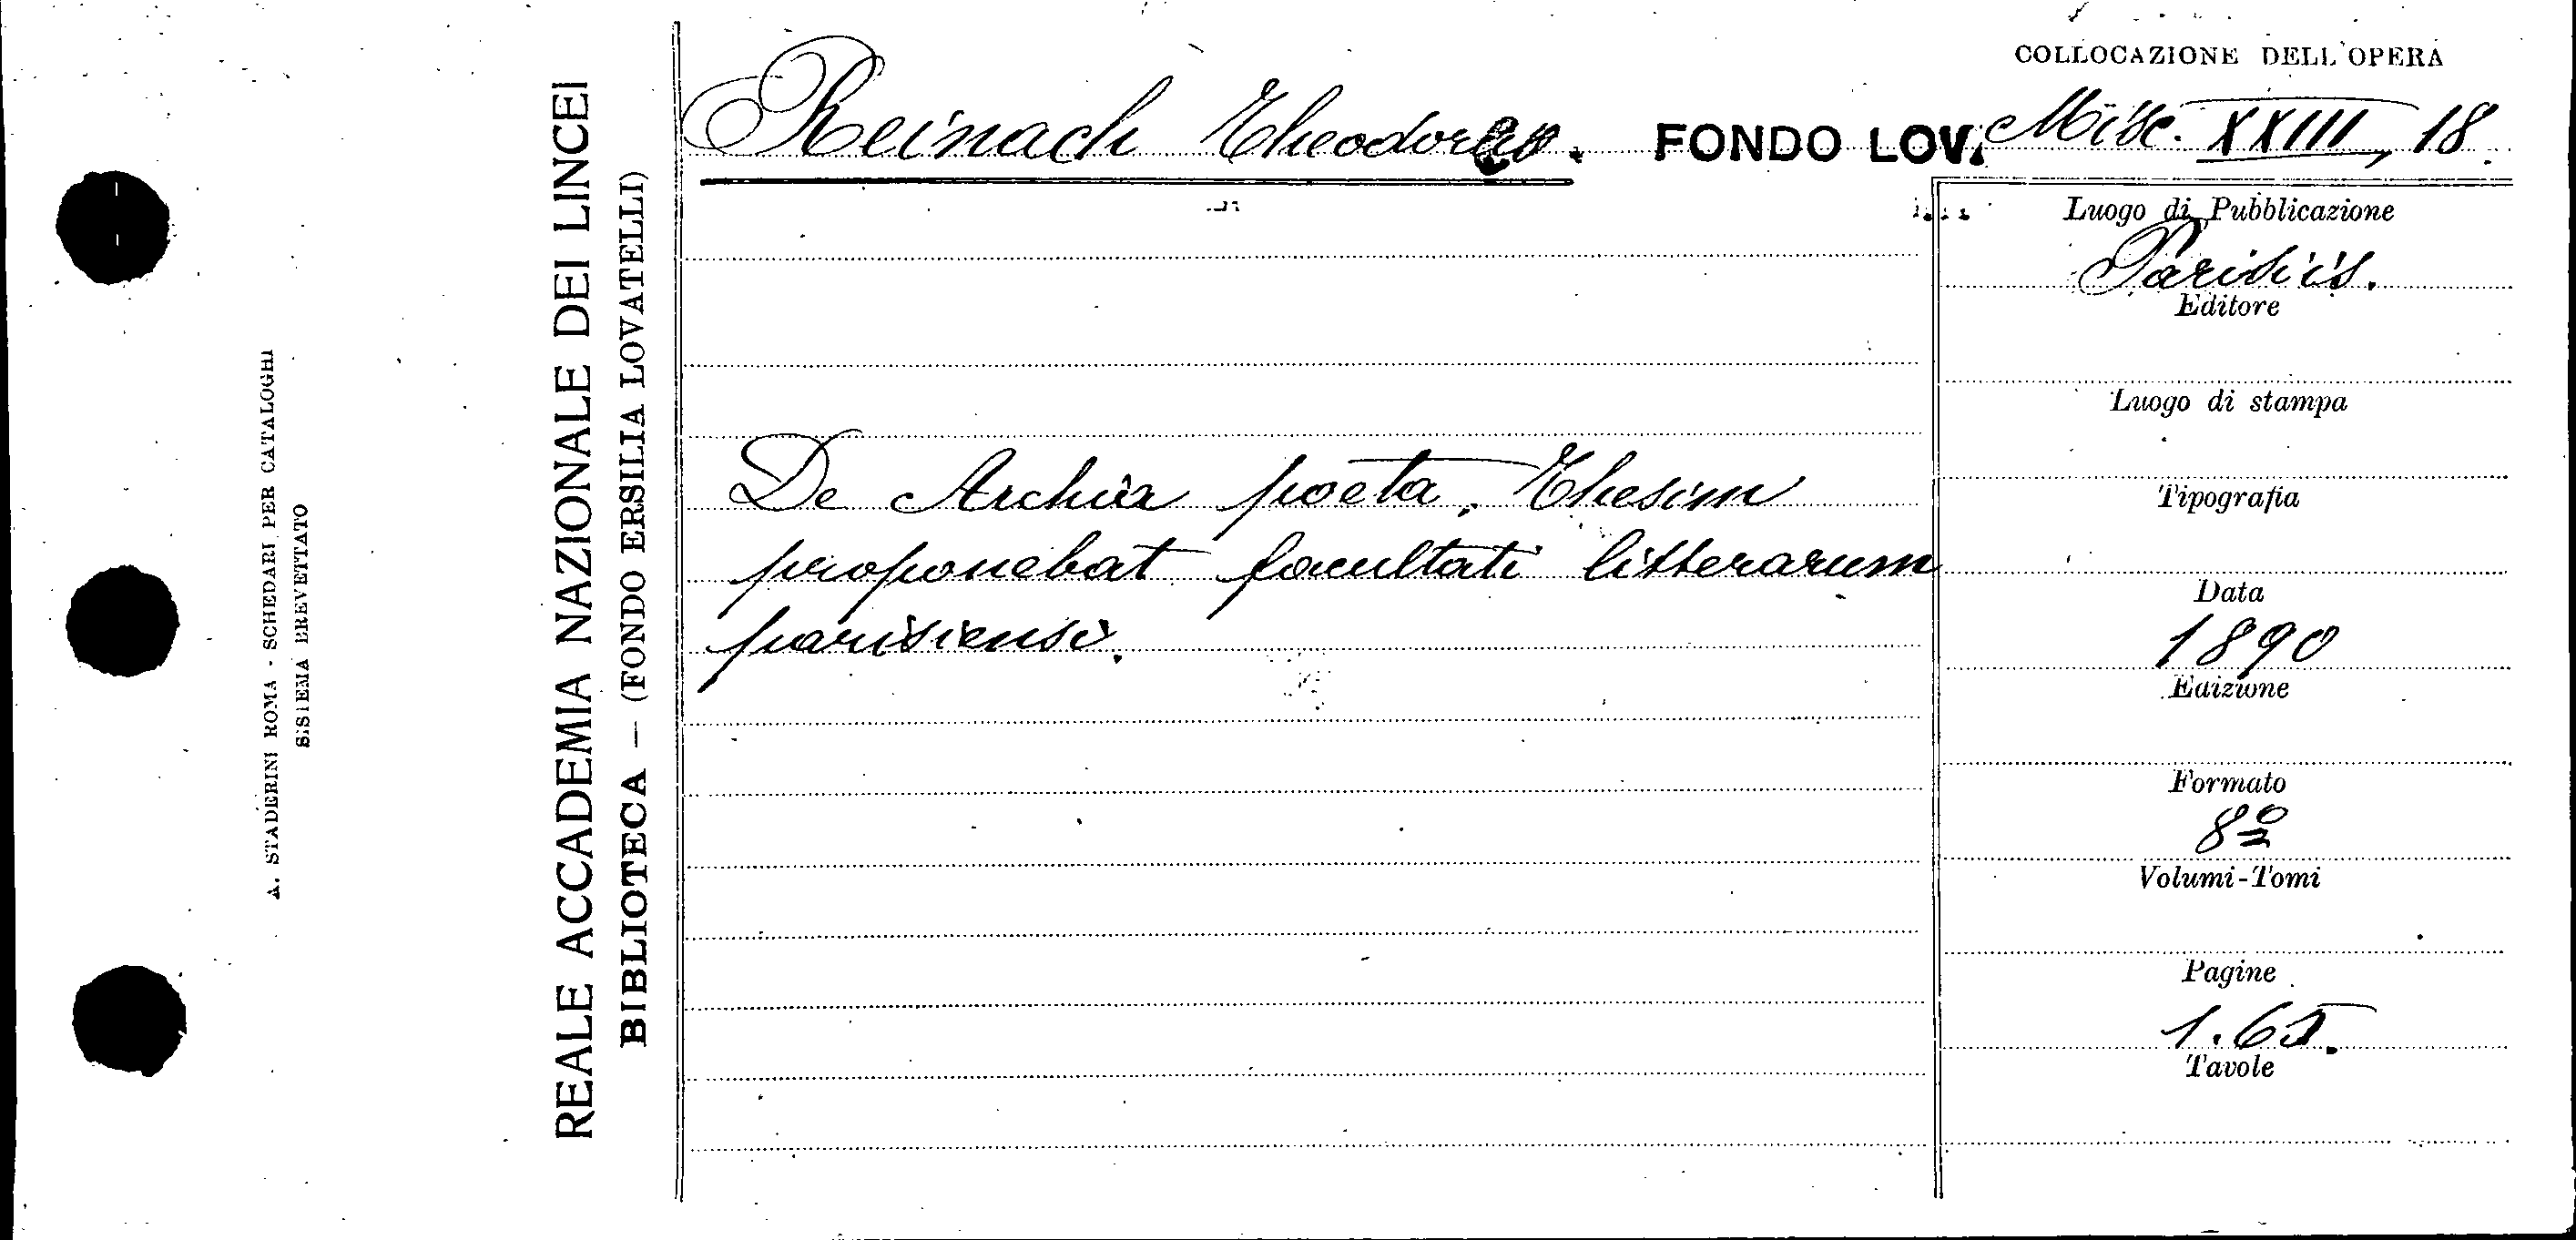 COLLOCAZIONE DELL'OPERA
Reinach FONDO LOV. Misc. XXIII, 18.
REALE ACCADEMIA NAZIONALE DEI LINCEI
BIBLIOTECA — (FONDO ERSILIA LOVATELLI)
A. STADERINI ROMA - SCHEDARI PER CATALOGHI
SISTEMA BREVETTATO
De Archia poeta. Thesim
proponebat facultati litterarum
parisiensi.
Luogo di Pubblicazione
Parisiis.
Editore
Luogo di stampa
Tipografia
Data
1890
Edizione
Formato
8º
Volumi-Tomi
Pagine
Tavole